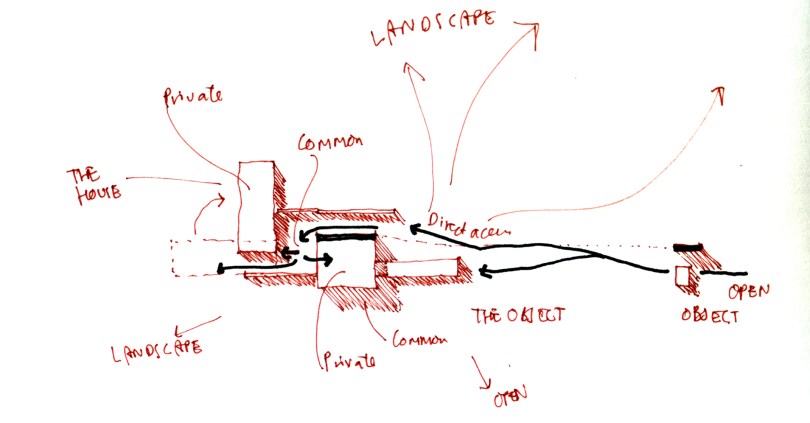 LANDSCAPE
Private
Common
THE
HOUSE
Direct access
OPEN
OBJECT
THE OBJECT
LANDSCAPE
Common
Private
OPEN